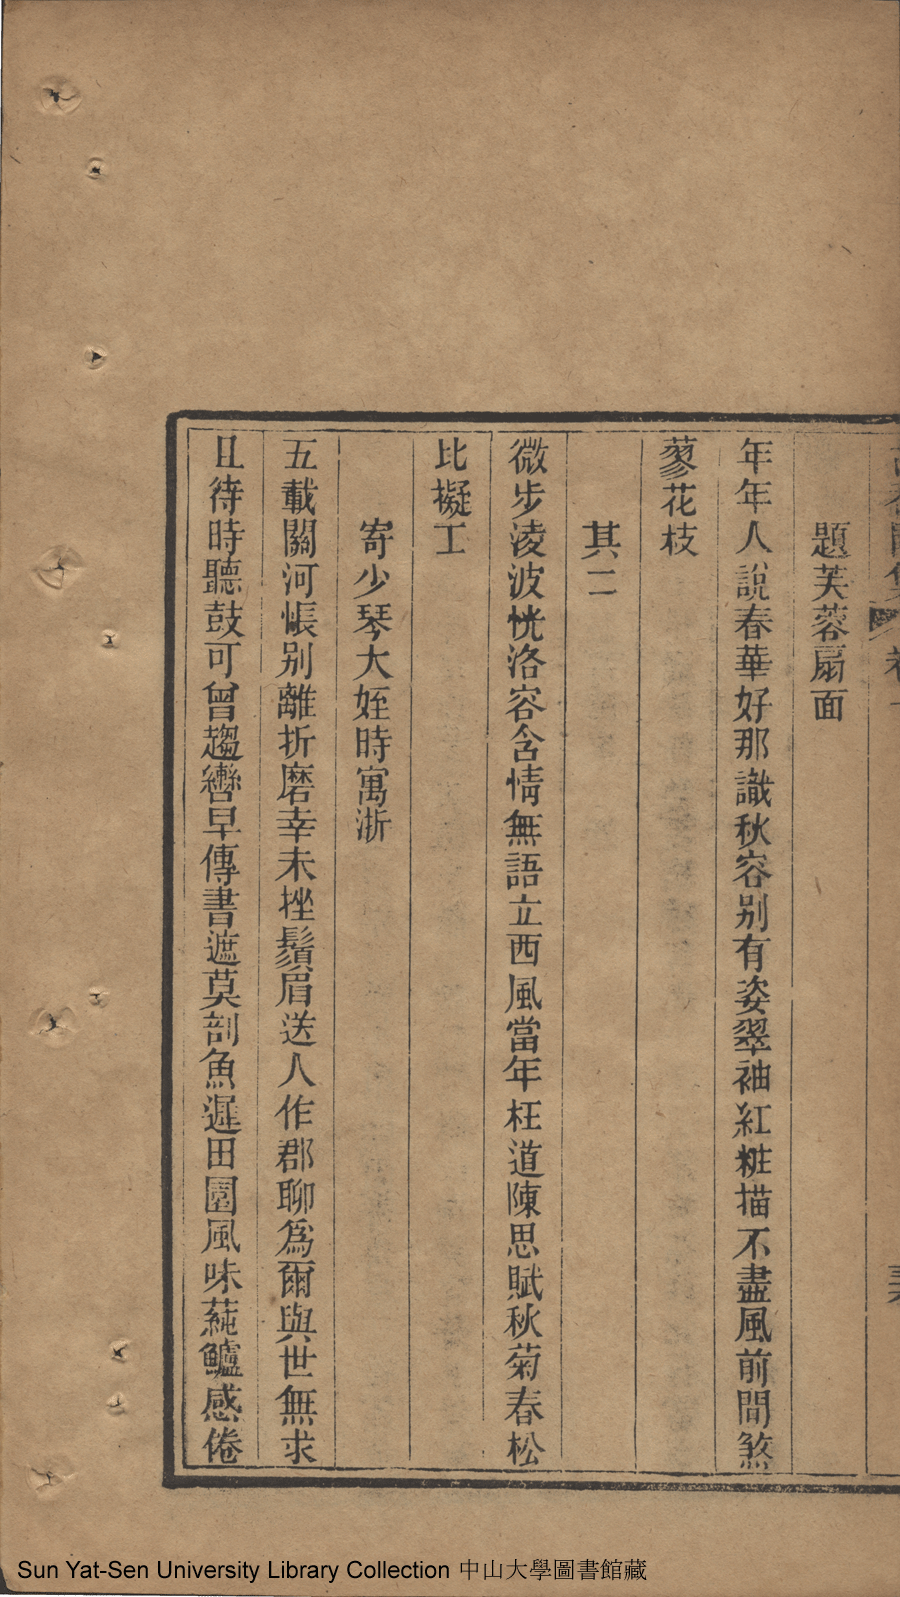 題芙蓉扇面
年年人說春華好那識秋容别有姿翠袖紅粧描不盡風前閒煞
蓼花枝
其二
微步淩波恍洛容含情無語立西風當年枉道陳思賦秋菊春松
比擬工
寄少琴大姪時寓浙
五載關河悵别離折磨幸未挫鬚眉送人作郡聊爲爾與世無求
且待時聽鼓可曾趨轡早傳書遮莫剖魚遲田園風味蒓鱸感倦
Sun Yat-Sen University Library Collection 中山大學圖書館藏